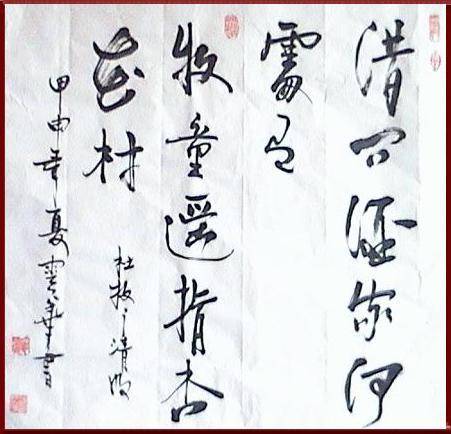 借问酒家何
處有
牧童遥指杏
花村
杜牧之清明
甲申年夏雲華書